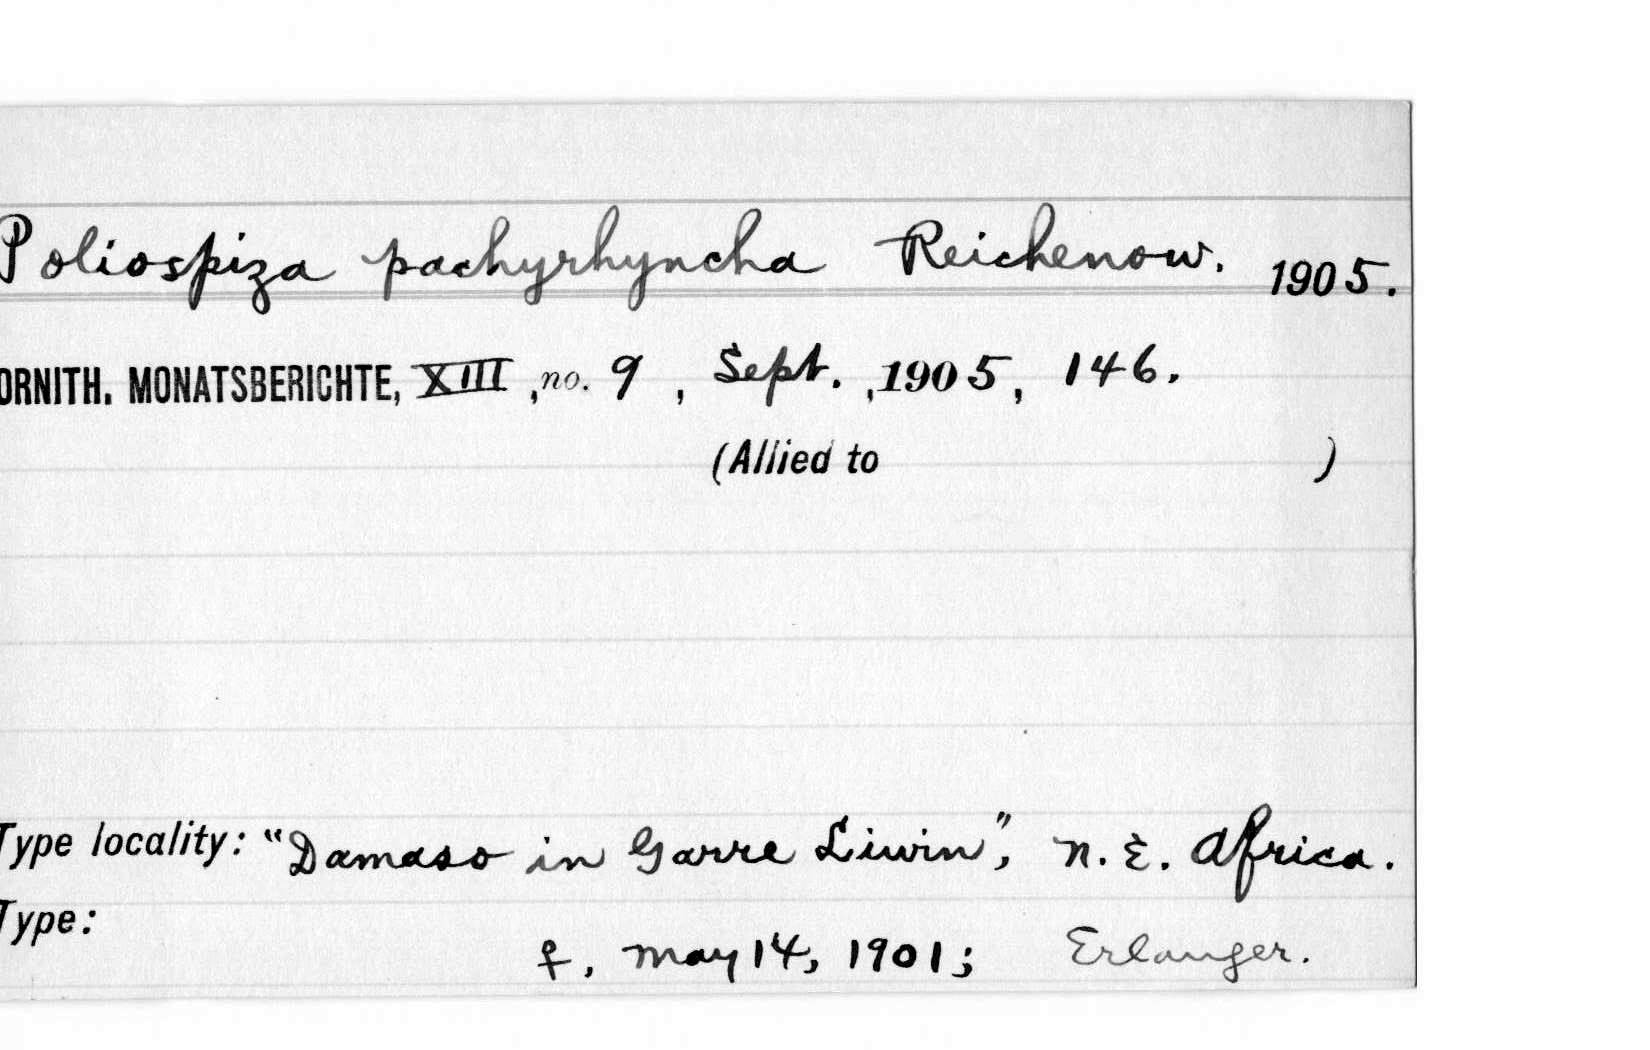 Poliospiza pachyrhyncha Reichenow. 1905.
ORNITH. MONATSBERICHTE, XIII, no. 9, Sept., 1905, 146.
(Allied to )
Type locality: "Damaso in Garre Liwin", N. E. Africa.
Type:
♀, May 14, 1901; Erlanger.